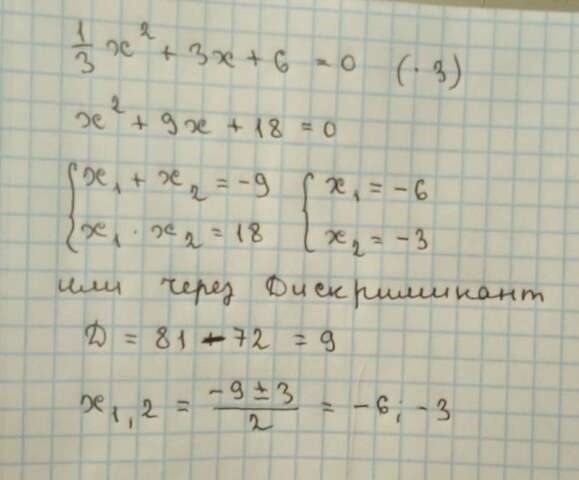 1/3 x² + 3x + 6 = 0 (· 3)
x² + 9x + 18 = 0
{ x₁ + x₂ = -9 { x₁ = -6
{ x₁ · x₂ = 18 { x₂ = -3
или через Дискриминант
Д = 81 - 72 = 9
x₁,₂ = (-9 ± 3)/2 = -6; -3